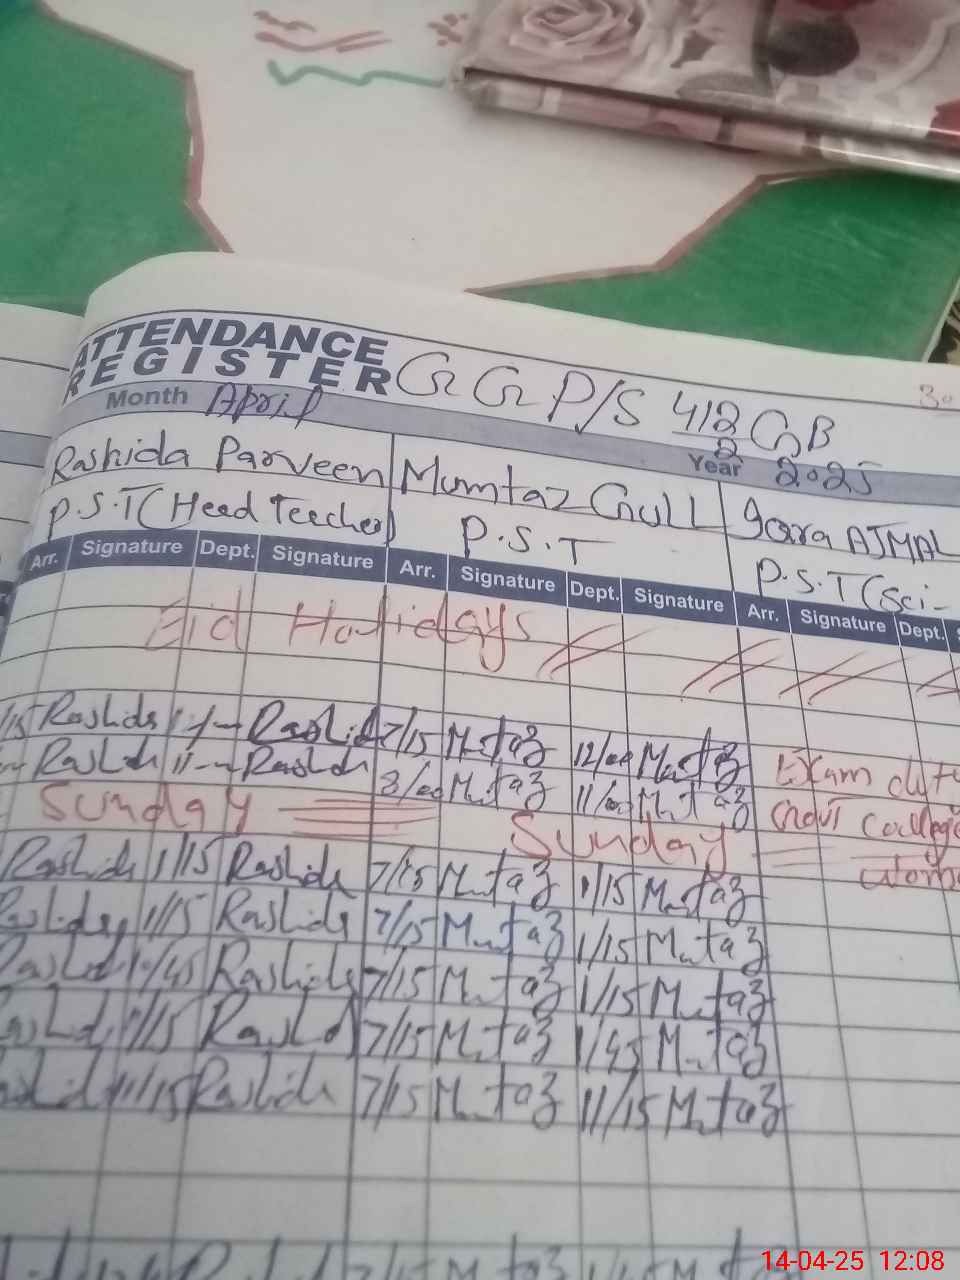 ATTENDANCE
REGISTER
G G P/S 412/2 GB
Month April
Year 2025
Rashida Parveen Mumtaz Gull AJMAL
P.S.T (Head Teacher) P.S.T P.S.T (Sci-
Arr. Signature Dept. Signature Arr. Signature Dept. Signature Arr. Signature Dept.
Eid Holidays
Rashida Rashid 7/15 Mutaz 12/00 Mutaz Exam duty
Rashda 11 Rashda 8/00 Mutaz 11/00 Mutaz college
Sunday Sunday
Rashida 1/15 Rashida 7/15 Mutaz 1/15 Mutaz
Rashida 1/15 Rashida 7/15 Mutaz 1/15 Mutaz
Rashida Rashida 7/15 Mutaz 1/15 Mutaz
Rashd 7/15 Mutaz 1/45 Mutaz
11/15 Rashida 7/15 Mutaz 11/15 Mutaz
14-04-25 12:08